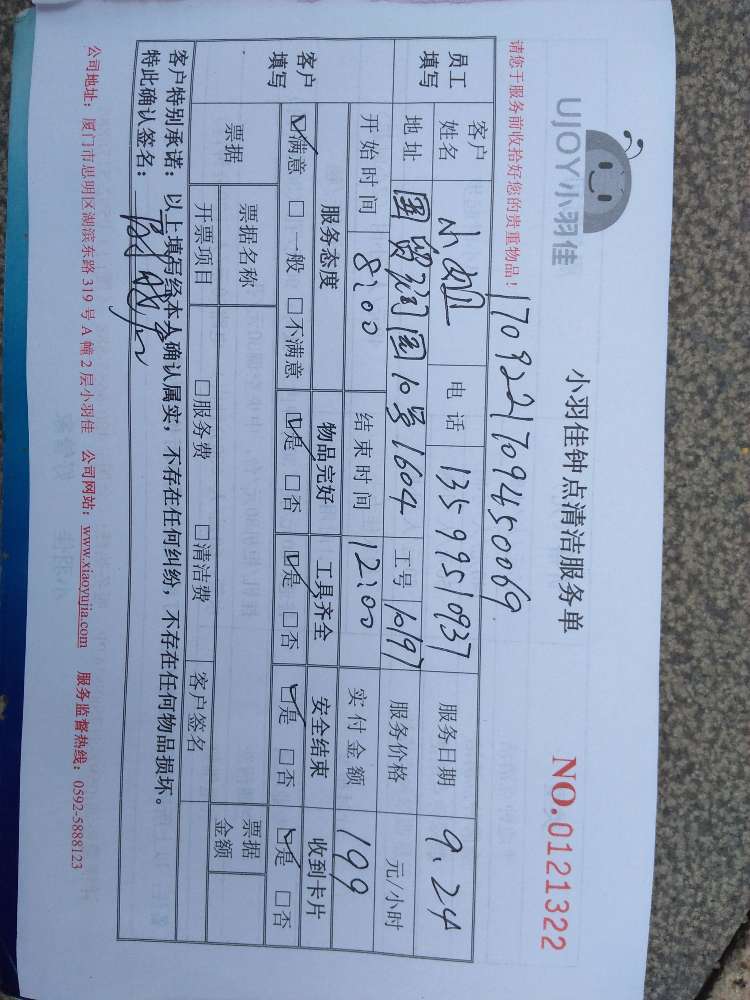 UJOY小羽佳
小羽佳钟点清洁服务单
NO.0121322
请您于服务前收拾好您的贵重物品！
170922170945 0069
员工填写 客户姓名 小姐 电话 13599510937 服务日期 9.24
地址 国贸润园10号1604 工号 10197 服务价格 元/小时
开始时间 8:00 结束时间 12:00 实付金额 199
客户填写 服务态度 物品完好 工具齐全 安全结束 收到卡片
☑满意 □一般 □不满意 ☑是 □否 ☑是 □否 ☑是 □否 ☑是 □否
票据 票据名称 票据金额
开票项目 □服务费 □清洁费 客户签名
客户特别承诺：以上填写经本人确认属实，不存在任何纠纷，不存在任何物品损坏。
特此确认签名：
公司地址：厦门市思明区湖滨东路319号A幢2层小羽佳 公司网站：www.xiaoyujia.com 服务监督热线：0592-5888123